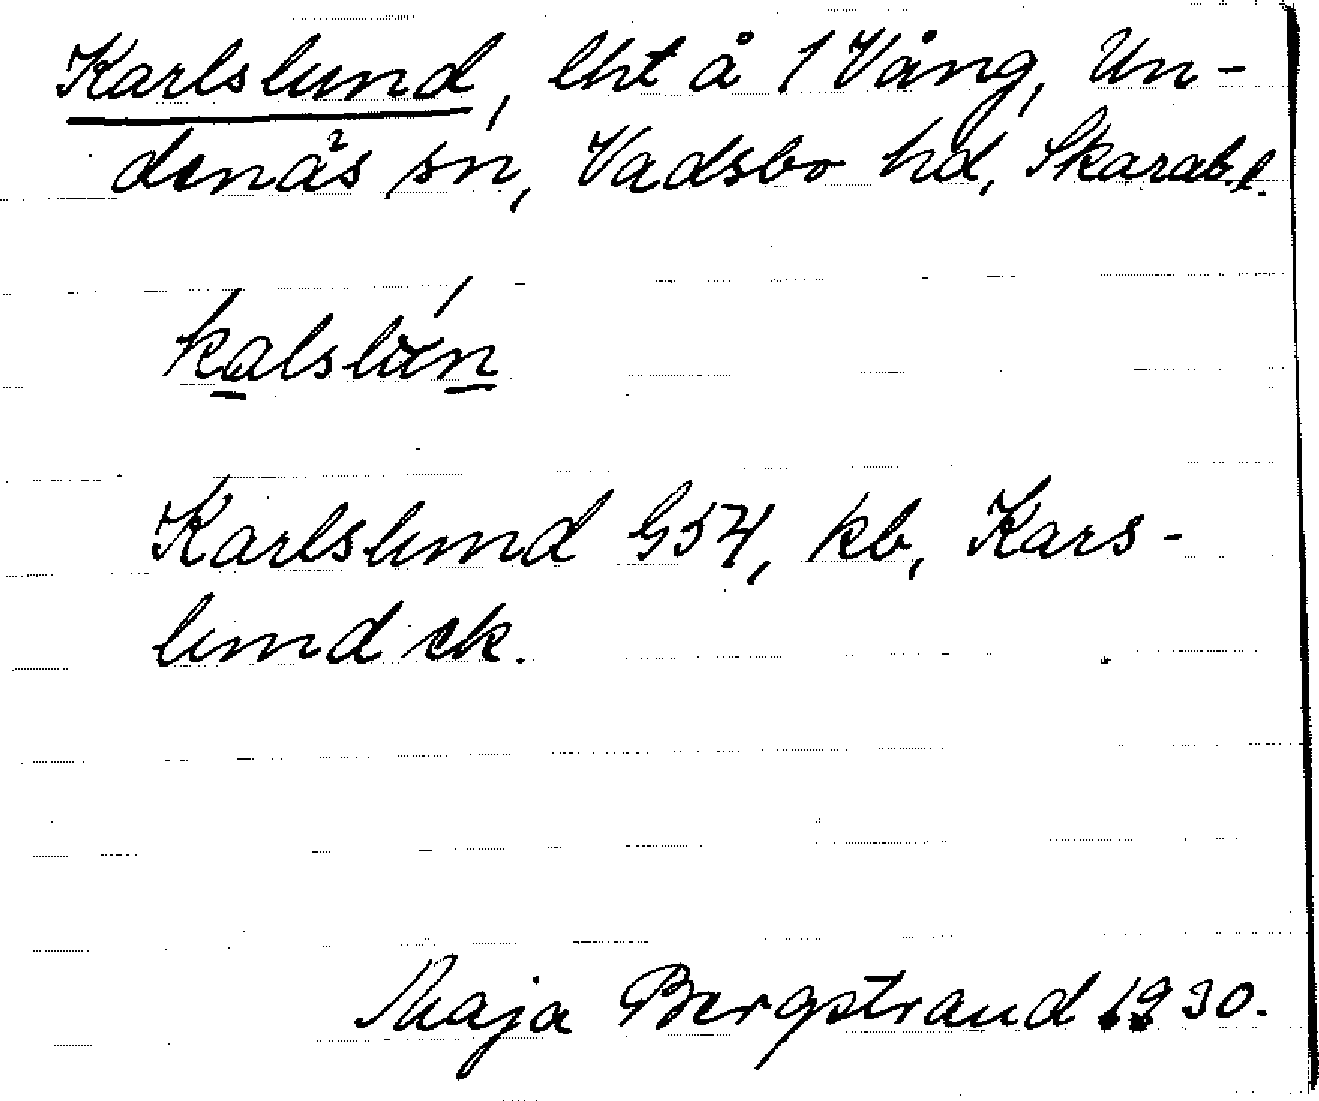 Karlslund, lht å 1 Vång, Un-
denäs sn, Vadsbo hd, Skarab. l.
Karlslund G54, kb, Kars-
lund ek.
Maja Bergstrand 1930.